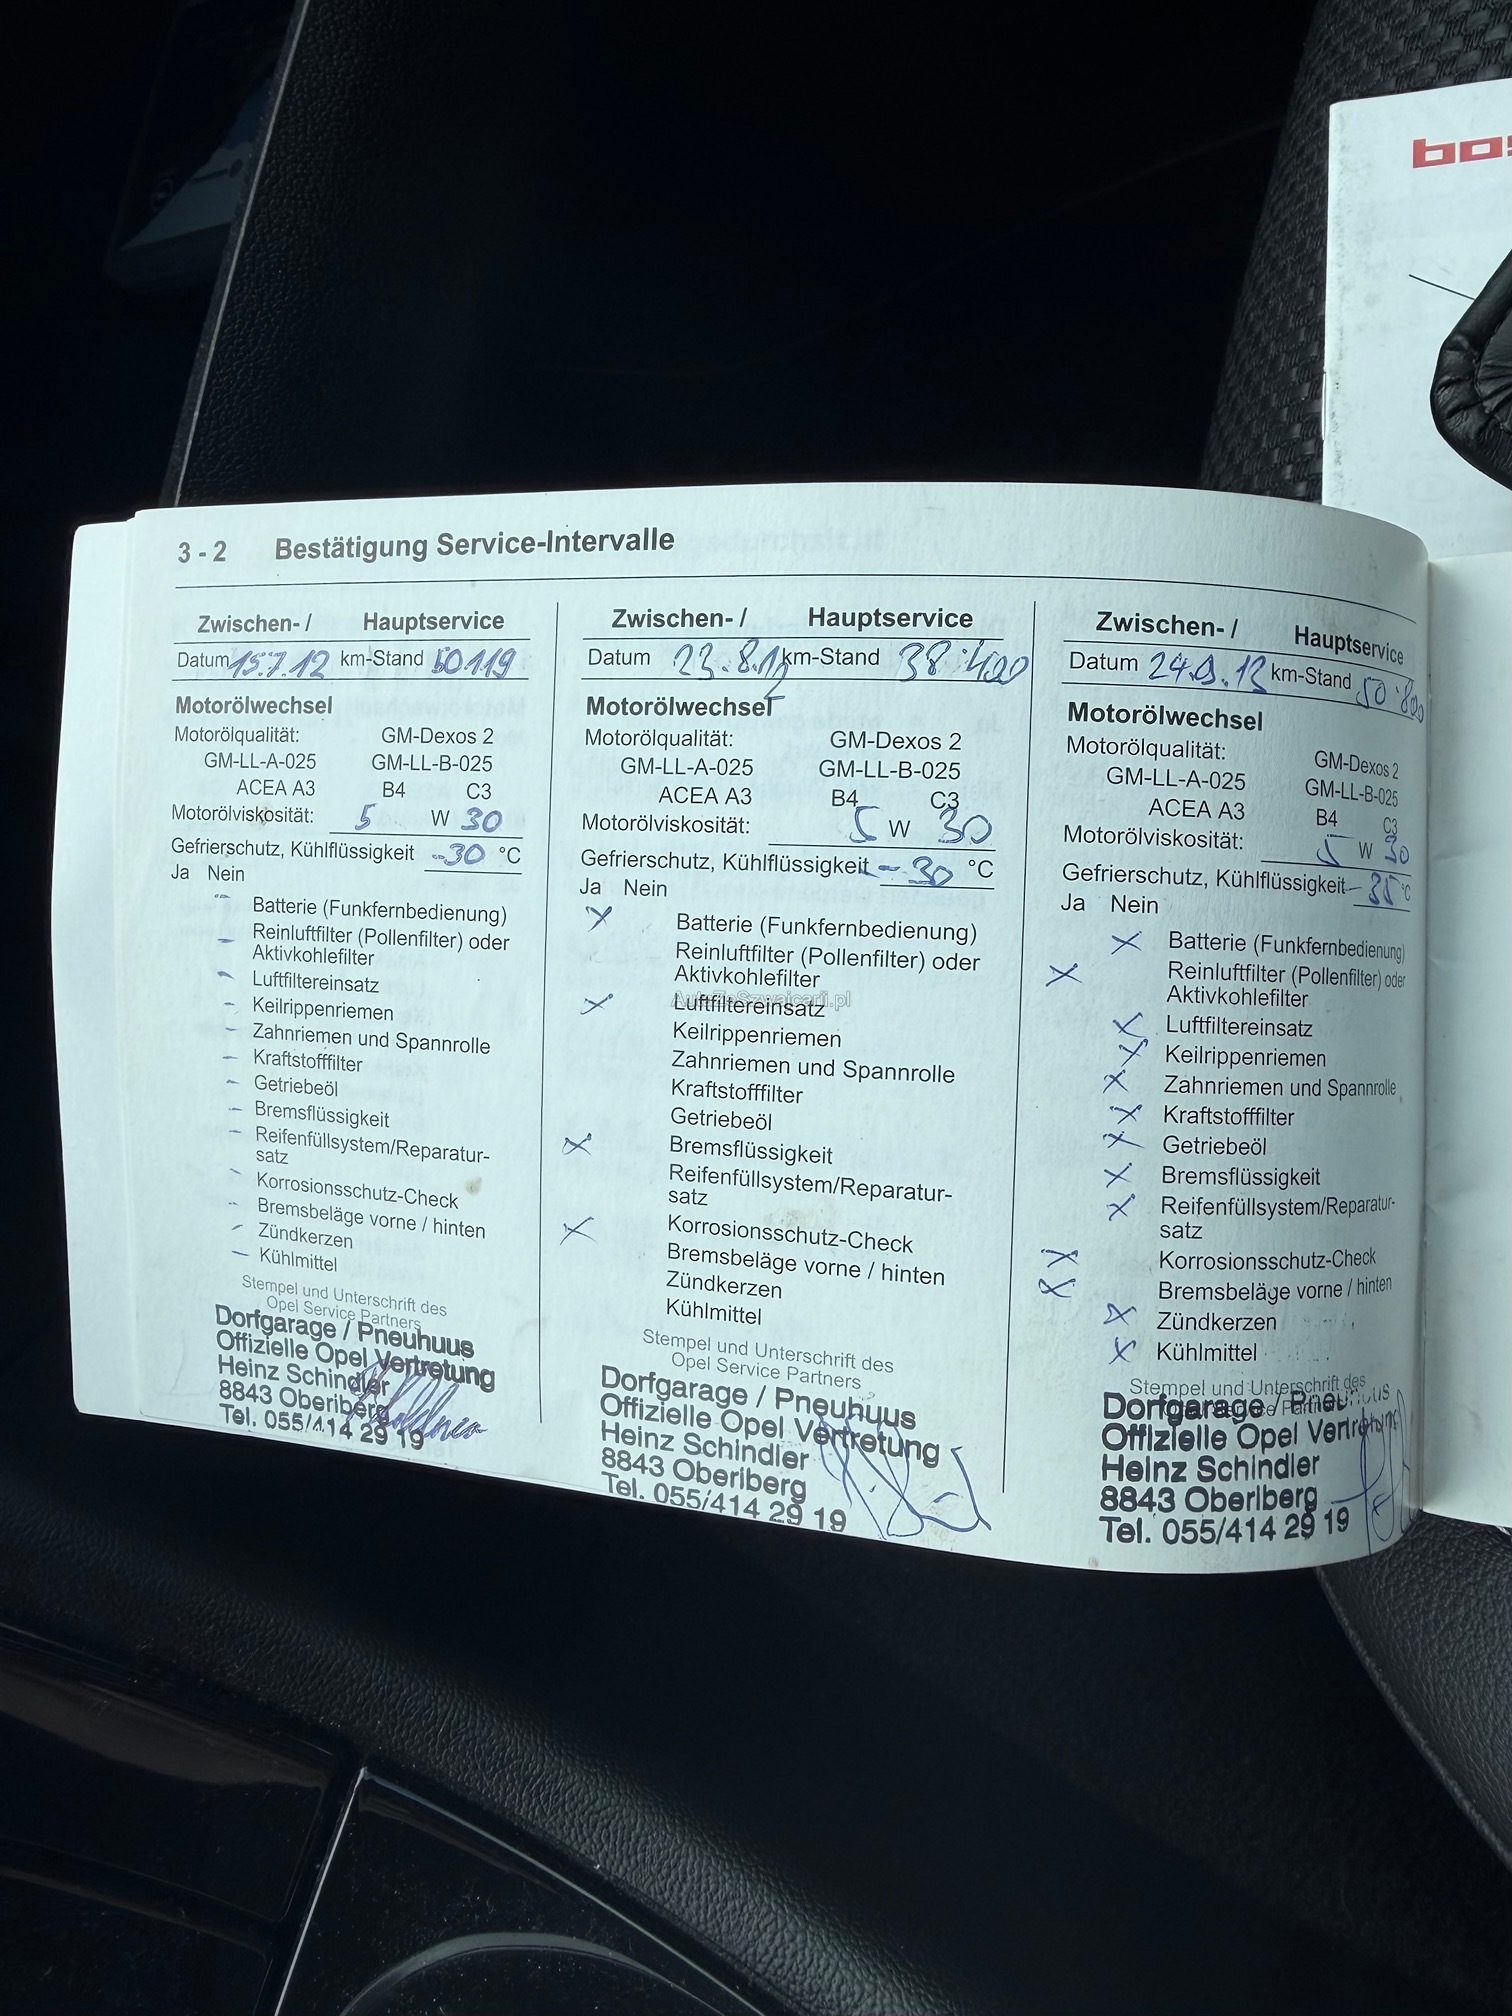 3 - 2 Bestätigung Service-Intervalle
Zwischen- / Hauptservice
Datum 15.7.12 km-Stand 50119
Motorölwechsel
Motorölqualität: GM-Dexos 2
GM-LL-A-025 GM-LL-B-025
ACEA A3 B4 C3
Motorölviskosität: 5 W 30
Gefrierschutz, Kühlflüssigkeit -30 °C
Ja Nein
Batterie (Funkfernbedienung)
Reinluftfilter (Pollenfilter) oder
Aktivkohlefilter
Luftfiltereinsatz
Keilrippenriemen
Zahnriemen und Spannrolle
Kraftstofffilter
Getriebeöl
Bremsflüssigkeit
Reifenfüllsystem/Reparatur-
satz
Korrosionsschutz-Check
Bremsbeläge vorne / hinten
Zündkerzen
Kühlmittel
Stempel und Unterschrift des
Opel Service Partners
Dorfgarage / Pneuhuus
Offizielle Opel Vertretung
Heinz Schindler
8843 Oberiberg
Tel. 055/414 29 19
Zwischen- / Hauptservice
Datum 23.8.12 km-Stand 38'400
Motorölwechsel
Motorölqualität: GM-Dexos 2
GM-LL-A-025 GM-LL-B-025
ACEA A3 B4 C3
Motorölviskosität: 5 W 30
Gefrierschutz, Kühlflüssigkeit - 30 °C
Ja Nein
Batterie (Funkfernbedienung)
Reinluftfilter (Pollenfilter) oder
Aktivkohlefilter
AutoZeSzwajcarii.pl
Luftfiltereinsatz
Keilrippenriemen
Zahnriemen und Spannrolle
Kraftstofffilter
Getriebeöl
Bremsflüssigkeit
Reifenfüllsystem/Reparatur-
satz
Korrosionsschutz-Check
Bremsbeläge vorne / hinten
Zündkerzen
Kühlmittel
Stempel und Unterschrift des
Opel Service Partners
Dorfgarage / Pneuhuus
Offizielle Opel Vertretung
Heinz Schindler
8843 Oberiberg
Tel. 055/414 29 19
Zwischen- / Hauptservice
Datum 24.9.13 km-Stand 50'800
Motorölwechsel
Motorölqualität: GM-Dexos 2
GM-LL-A-025 GM-LL-B-025
ACEA A3 B4 C3
Motorölviskosität: 5 W 30
Gefrierschutz, Kühlflüssigkeit - 35 °C
Ja Nein
Batterie (Funkfernbedienung)
Reinluftfilter (Pollenfilter) oder
Aktivkohlefilter
Luftfiltereinsatz
Keilrippenriemen
Zahnriemen und Spannrolle
Kraftstofffilter
Getriebeöl
Bremsflüssigkeit
Reifenfüllsystem/Reparatur-
satz
Korrosionsschutz-Check
Bremsbeläge vorne / hinten
Zündkerzen
Kühlmittel
Stempel und Unterschrift des
Dorfgarage / Pneuhuus
Offizielle Opel Vertretung
Heinz Schindler
8843 Oberiberg
Tel. 055/414 29 19